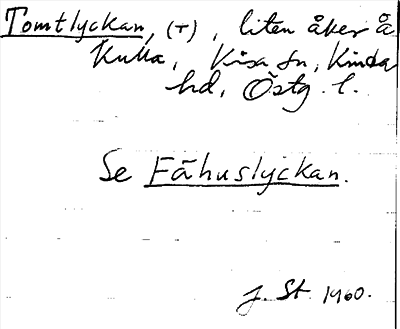 Tomtlyckan, (T), liten åker å
Kulla, Kisa sn, Kinda
hd, Östg. l.
Se Fähuslyckan.
J. St. 1960.